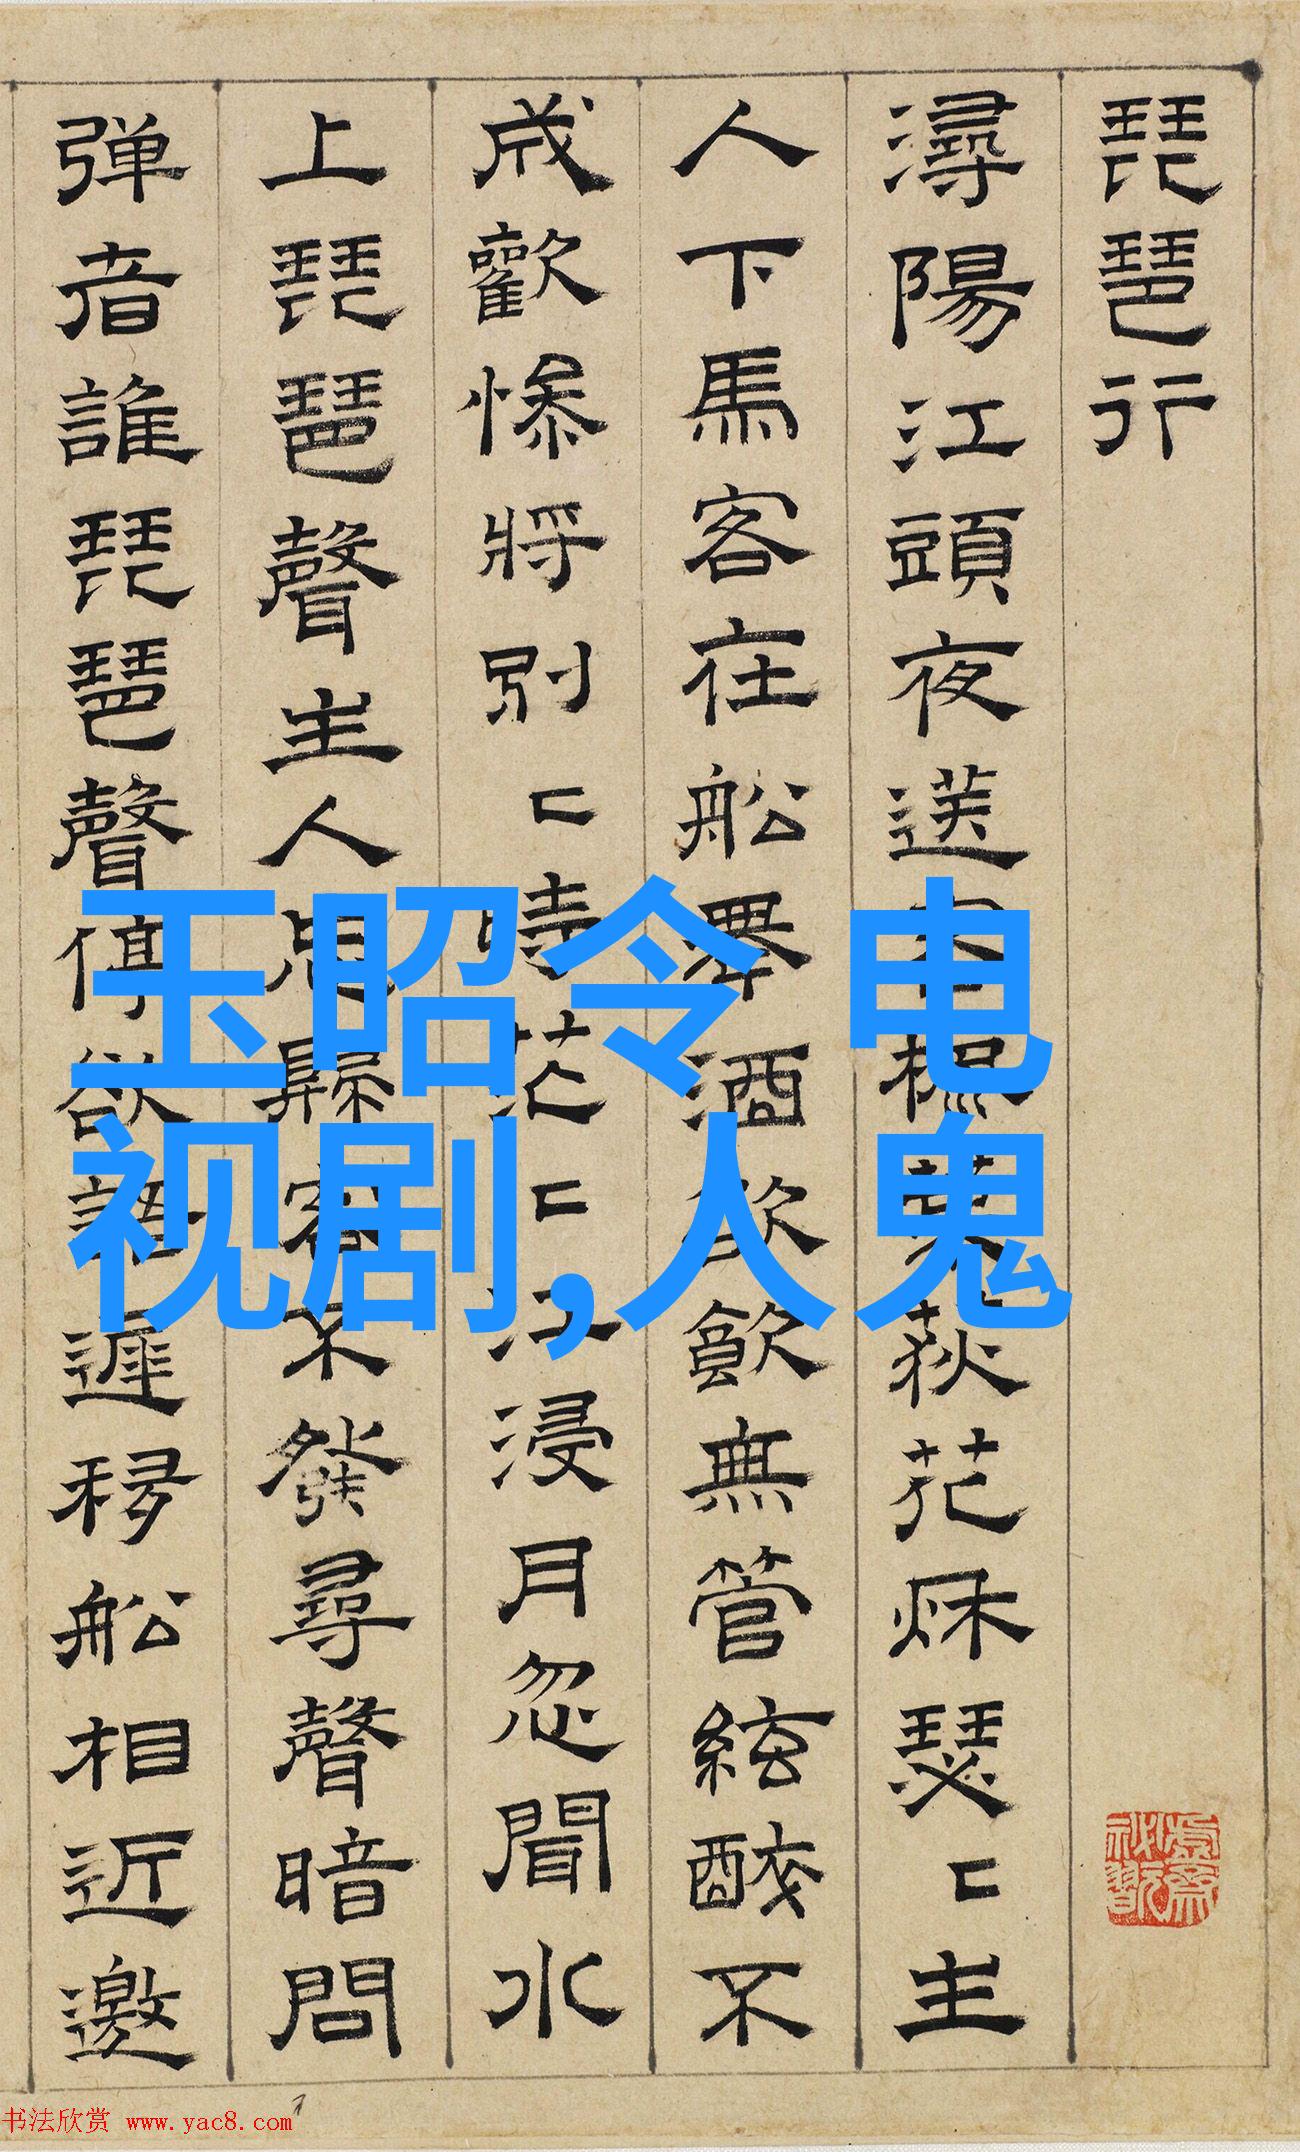 琵琶行
潯陽江頭夜送客楓葉荻花秌瑟〻主
人下馬客在船舉酒欲飲無管絃醉不
成歡慘將別〻時茫〻江浸月忽聞水
上琵琶聲主人忘歸客不發尋聲暗問
弹者誰琵琶聲停欲語遲移船相近邀
玉昭令 电
视剧,人鬼
书法欣赏 www.yac8.com